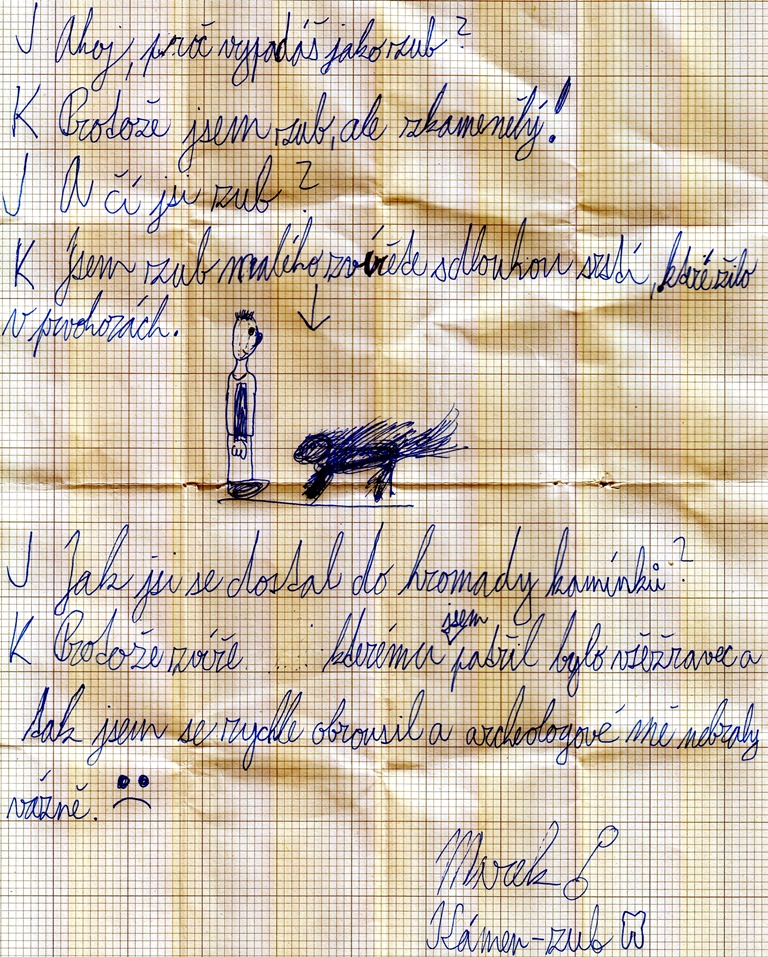 J Ahoj, proč vypadáš jako zub?
K Protože jsem zub, ale zkamenělý!
J A čí jsi zub?
K Jsem zub malého zvířete s dlouhou srstí, které žilo
v prvohorách.
J Jak jsi se dostal do hromady kamínků?
jsem
K Protože zvíře ..... kterému patřil bylo všežravec a
tak jsem se rychle obrousil a archeologové mě nebraly
vážně.
Marek
Kámen-zub